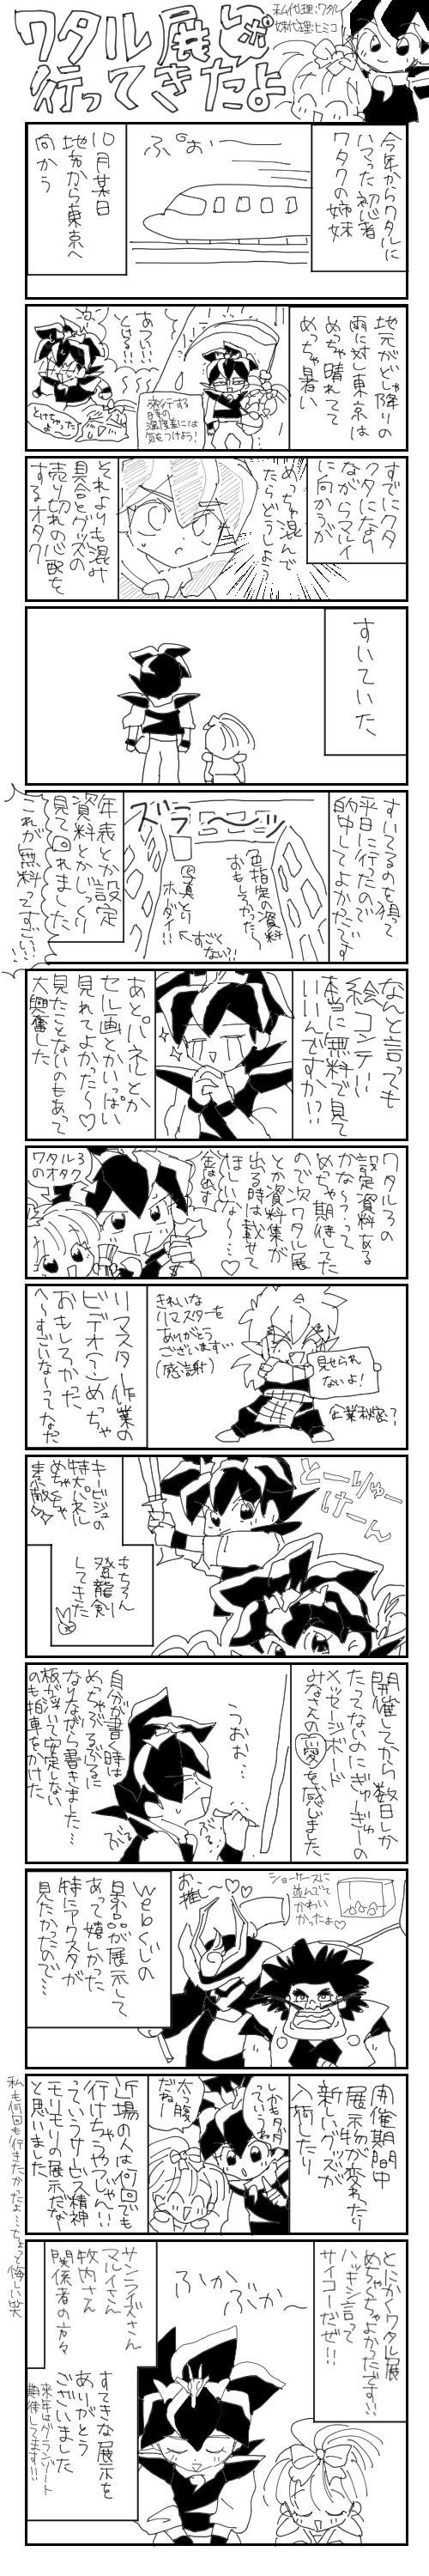 ワタル展レポ
行ってきたよ
私代理:ワタル
妹代理:ヒミコ
今年からワタルに
ハマった初心者
ワタクの姉妹
ふぉー
10月某日
地方から東京へ
向かう
地元がどしゃ降りの
雨に対し東京は
めっちゃ晴れてて
めっちゃ暑い
あつい…
とける…
旅行する
時の
温度差には
気をつけよう!
とけちゃった
すでにクタ
クタになり
ながらマルイ
に向かうが
めっちゃ混んで
たらどうしよう
それよりも混み
具合とグッズの
売り切れの心配を
するオタク
すいていた、
すいてるのを狙って
平日に行ったので
的中してよかったです
ズラ〜ッ
色指定の資料
おもしろかった〜
写真とり
ホーダイ!!
すごくない?!
年表とか設定
資料とかじっくり
見て回れました
これが無料ってすごい!!
なんと言っても
絵コンテ!!
本当に無料で見て
いいんですか!?
あとパネルとか
セル画とかいっぱい
見れてよかった〜♡
見たことないのもあって
大興奮した
ワタル3の
設定資料ある
かな〜?って
めちゃ期待してた
ので次ワタル展
とか資料集が
出る時は載せて
ほしいな〜…♡
金は出す
ワタル3
のオタク
きれいな
リマスターを
ありがとう
ございます…
(感謝)
見せられ
ないよ!
企業秘密?
リマスター作業の
ビデオ(?)めっちゃ
おもしろかった
へ〜すごいな〜ってなった
とーりゅー
けーん
キービジュの
特大パネル
めちゃくちゃ
素敵♡
もちろん
登龍剣
してきた
開催してから数日しか
たってないのにぎゅーぎゅーの
メッセージボード
みなさんの愛を感じました
うおお…
自分が書く時は
めっちゃぶるぶるに
なりながら書きました…
板が浮いて安定しない
のも拍車をかけた
ショーケースに
並んでて
かわいかったよ♡
お、推し〜♡♡
Webくじの
景品が展示して
あって嬉しかった
特にアクスタが
見たかったので…
開催期間中
展示物が変わったり
新しいグッズが
入荷したり
しかもタダ
っていうね
太っ腹
だね!
近場の人は何回でも
行けちゃうやつじゃん!!
っていうサービス精神
モリモリの展示だな〜
と思いました
私も何回も行きたかったよ…ちょっと悔しい笑
とにかくワタル展
めちゃくちゃよかったです!!
ハッキシ言って
サイコーだぜ!!
ふか
ぶか〜
サンライズさん
マルイさん
牧内さん
関係者の方々
すてきな展示を
ありがとう
ございました
来年はグランゾート
期待してます!!!